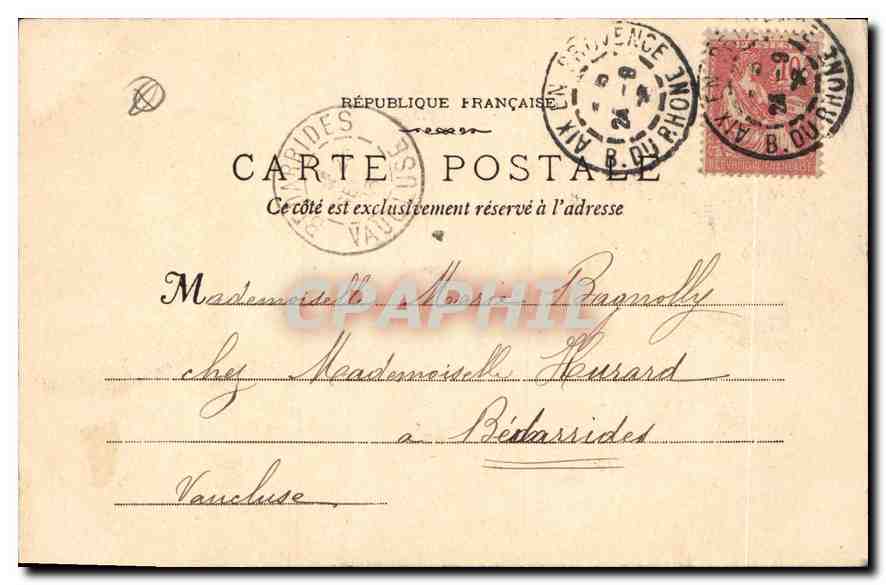 AIX EN PROVENCE
B. DU RHONE
AIX EN
B. DU RHONE
10
RÉPUBLIQUE FRANÇAISE
RÉPUBLIQUE FRANÇAISE
BEDARRIDES
VAUCLUSE
CARTE POSTALE
Ce côté est exclusivement réservé à l'adresse
CPAPHIL
Mademoiselle Marie Bagnolly
chez Mademoiselle Hurard
à Bédarrides
Vaucluse